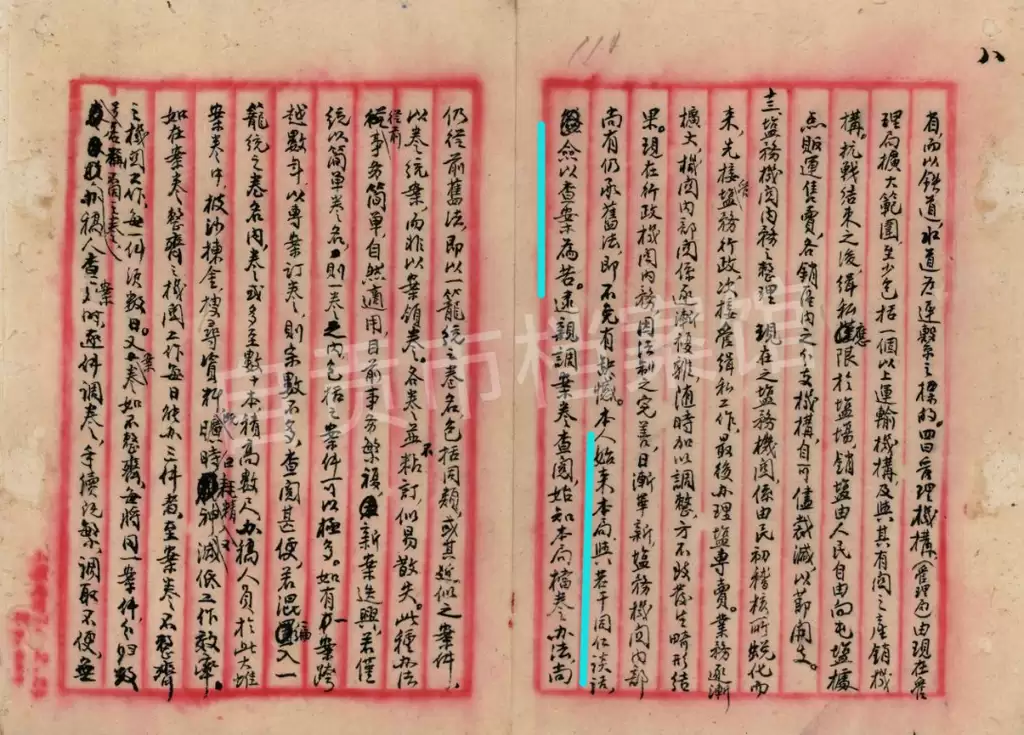 八
114
有,而以鐵道,水道為連繫之標的。四曰管理機構,(管理包由現在管
理局擴大範圍,至少包括一個以上運輸機構,及與其有關之產銷機
構,抗戰結束之後,緝私應僅限於鹽場,銷鹽由人民自由向屯鹽據
点販運售賣,各銷區內之分支機構,自可儘裁減,以節開支。
十三 鹽務機關內務之整理 現在之鹽務機關,係由民初稽核所蛻化而
來,先接管鹽務行政,次接管緝私工作,最後办理鹽專賣。業務逐漸
擴大,機關內部關係逐漸複雜,隨時加以調整,方不致發生畸形結
果。現在行政機關內務,因法制之完善,日漸革新,鹽務機關內部
尚有仍承舊法,即不免有缺憾。本人始來本局,與若干同仁談話,
僉以查案為苦。遠親調案卷查閱,始知本局檔卷办法,尚
仍從前舊法,即以一籠統之卷名,包括同類,或其近似之案件,
以卷統案,而非以案領卷。各卷並不粘訂,似易散失。此種办法
從前事务簡單,自然適用,目前事务繁複,新案迭興,若僅
統以簡單卷名,則一卷之內,包括之案件可以極多。如有一案跨
越數年,以專案訂卷,則案數不多,查閱甚便,若混編入一
籠統之卷名內,卷或多至數十本,積高數尺,办稿人員於此大堆
案卷中,披沙揀金,搜尋資料,曠時耗精神,減低工作效率。
如在案卷整齊之機關,工作每日能办三件者。至案卷不整齊
之機關,工作每一件須數日。又案卷如不整齊,每將同一案件,分归數
号名稱不同之卷
办稿人查案時,逐件調卷,手續既繁,調取不便,無
自贡市档案馆